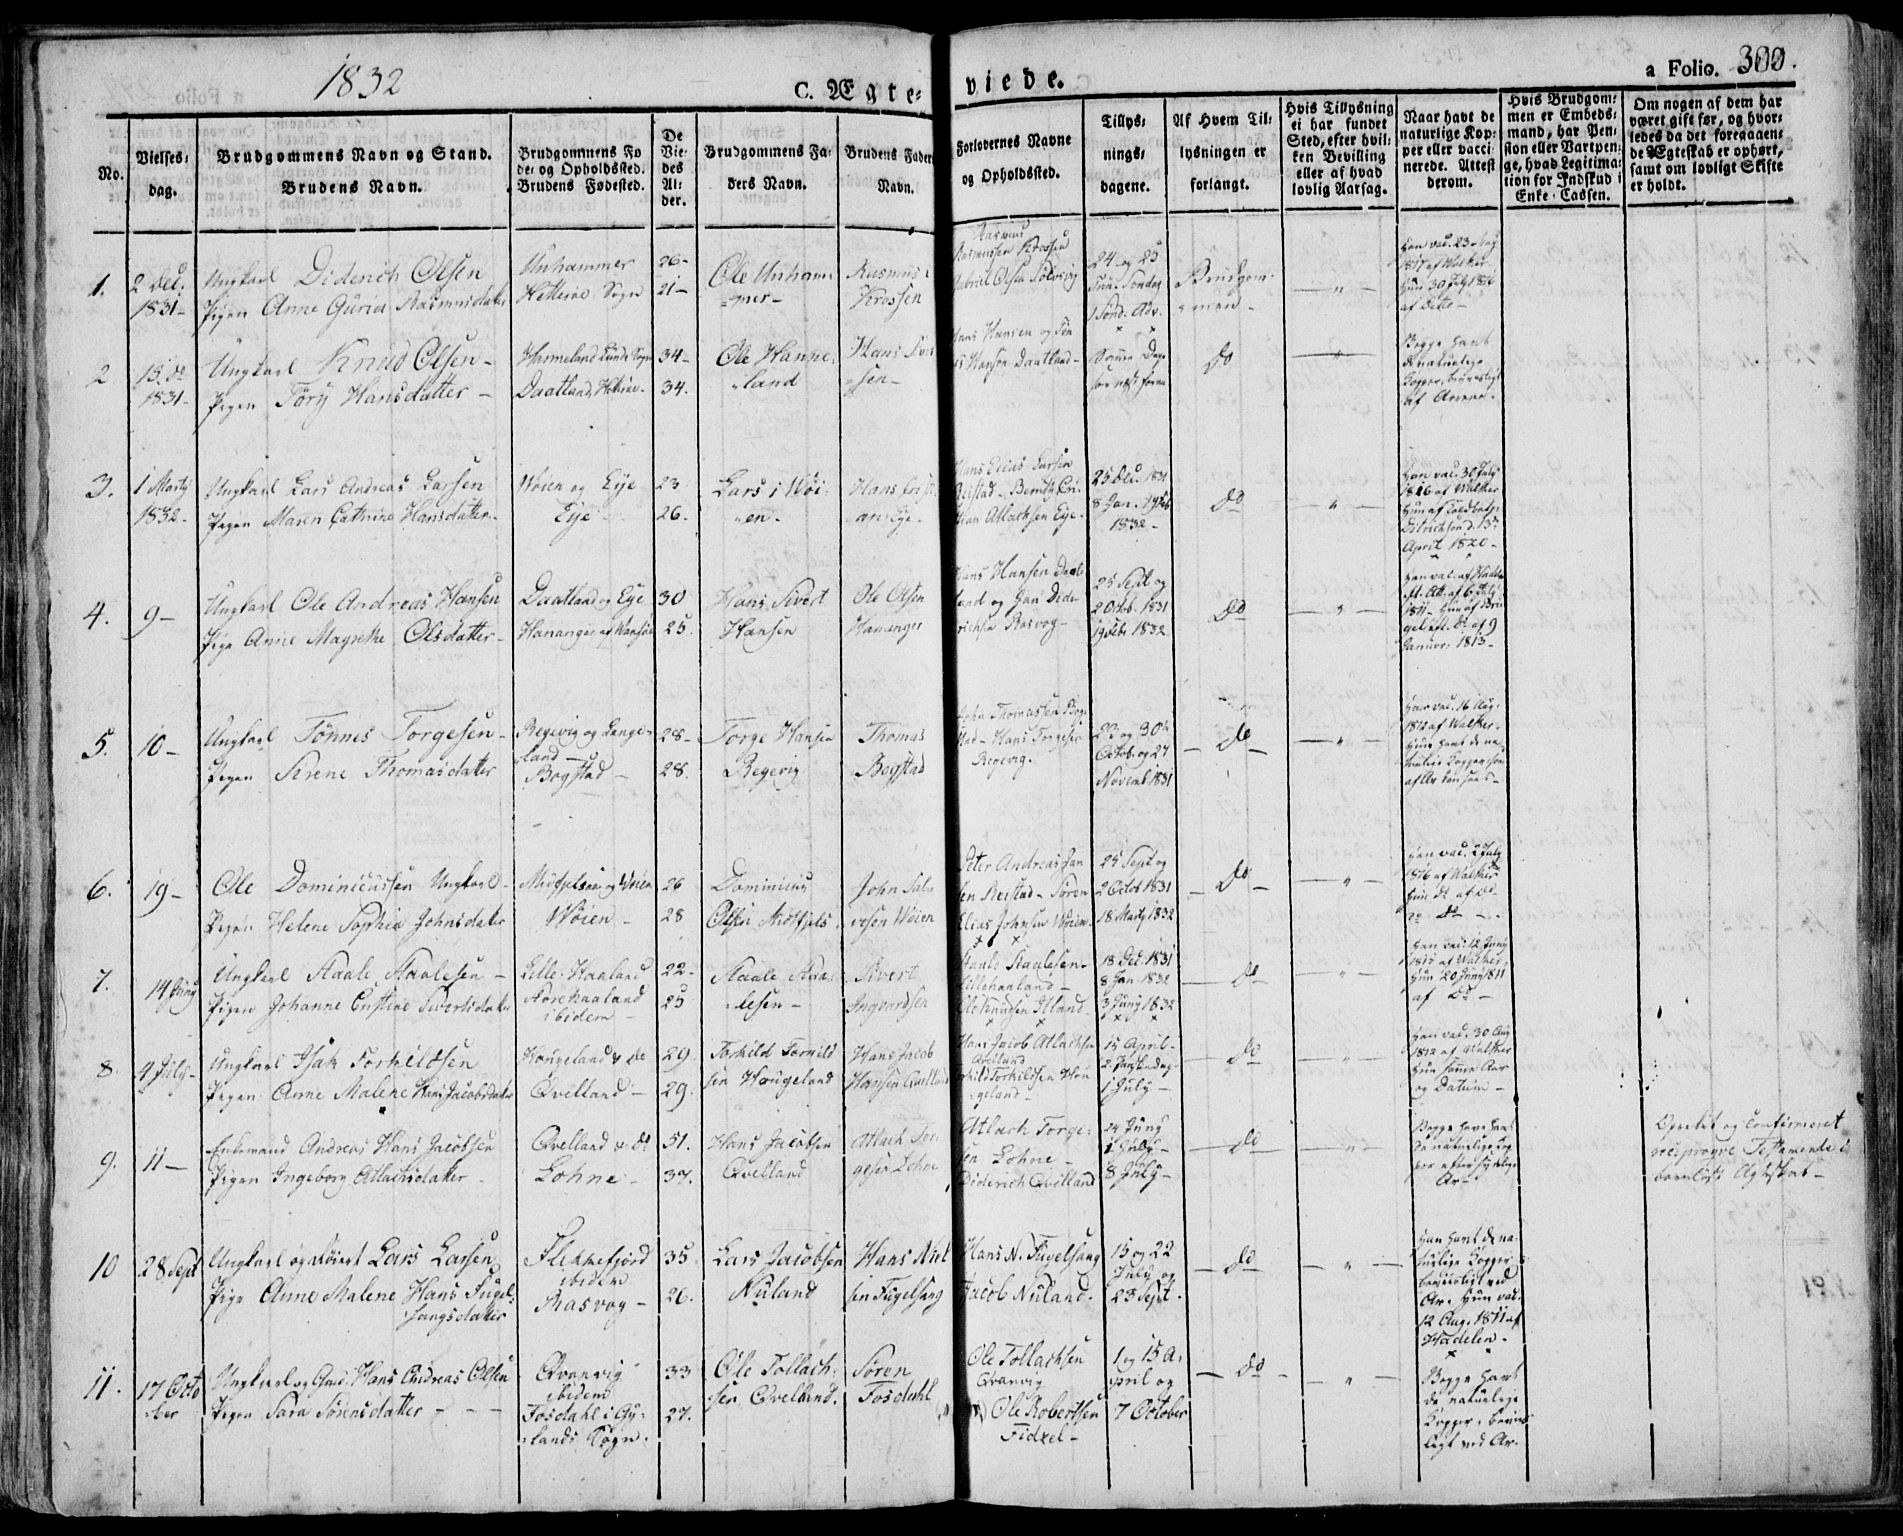 1832
C. Ægte-
viede.
a Folio. 300.
No.
Vielses-
dag.
Brudgommens Navn og Stand.
Brudens Navn.
Brudgommens Fø
de- og Opholdssted.
Brudens Fødested.
De
Vie-
des
Al-
der.
Brudgommens Fa-
ders Navn.
Brudens Faders
Navn.
Forlovernes Navne
og Opholdssted.
Tillys-
nings-
dagene.
Af Hvem Til-
lysningen er
forlangt.
Hvis Tillysning
ei har fundet
Sted, efter hvil-
ken Bevilling
eller af hvad
lovlig Aarsag.
Naar havt de
naturlige Kop-
per eller vacci-
nerede. Attest
derom.
Hvis Brudgom-
men er Embeds-
mand, har Pen-
sion eller Vartpen-
ge, hvad Legitima-
tion for Indskud i
Enke-Cassen.
Om nogen af dem har
været gift før, og hvor-
ledes da det foregaaen-
de Ægteskab er ophørt,
samt om lovligt Skifte
er holdt.
1.
2 Dec.
1831-
Ungkarl Diderich Olsen
Pigen Anne Gurid Rasmusdatter
Unhammer
Hetterøe Sogn
26-
21-
Ole Unham-
mer-
Rasmus
Krossen
Rasmus
Rasmussen Krossen
Gabriel Olsen Solvsvig
24 og 25
Trin. Søndag
1 Sønd. Adv.
Brudgom-
men-
Han vac. 23 May
1817 af Walker
Hun 30 July 1816
af Ditto-
2
13 do
1831-
Ungkarl Knud Olsen-
Pigen Tory Hansdatter-
Hanneland Lunde Sogn
Daatland, Hetterøe-
34-
34.
Ole Hanne-
land
Hans Siver
sen-
Hans Hansen og Tøn
es Hansen Daatland-
Samme Dage
som næst foran
do
Begge havt
de naturlige
Kopper, beviisligt
af Arrene.
3.
1 Marty
1832-
Ungkarl Lars Andreas Larsen
Pigen Maren Catrine Hansdatter-
Wøien og Eije
Eije-
23-
26.
Lars i Wøi-
en-
Hans Cristi
an Eye-
Hans Elias Larsen
Reistad- Bernt Cri-
stian Atlachsen Eye-
25 Dec. 1831
8 Jan. 19 Feb
1832-
do
Han vac. 30 July
1816 af Walker
Hun af
Ditrichson d. 13
April 1820-
4.
9-
Ungkarl Ole Andreas Hansen
Pige Anne Magrethe Olsdatter-
Daatland og Eye
Hananger af Wansøe
30
25.
Hans Sivert
Hansen
Ole Olsen
Hananger
Hans Hansen Daat-
land og Jan Dide-
richsen Rasvog-
25 Sept og
2 Octob. 1831
19 Feb. 1832
do
Han vac. af
Att. af 6 July
1811- Hun af
9
Januar. 1813-
5.
10-
Ungkarl Tønnes Torgesen-
Pigen Sirene Thomasdatter
Regevig og Lange-
land-
Bogstad-
28-
28.
Torge Hansen
Regevig
Thomas
Bogstad
John Thomassen Bog-
stad- Hans Torgesen
Regevig.
23 og 30te
Octob. og 27
Novemb 1831
do
Han vac. 16 Aug.
1812 af Walker-
Hun havt de na-
turlige Kopper som
af Ar kan sees-
6.
19-
Ole Dominicussen Ungkarl-
Pigen Helene Sophia Johnsdatter
Midfjelsaa og Wøien
Wøien-
26
28
Dominicus
Olsen Midtfjels
John Salve
vesen Wøien
Peter Andreas Jan
sen Reistad- Søren
Elias Johnsen Wøien-
25 Sept og
2 Octob 1831
18 Marty 1832
do
Han vac. 2 July
1816 af Walker
Hun do af do
do
7.
14 Juny
Ungkarl Staale Staalesen-
Pigen Johanne Cristine Sivertsdatter
Lille-Haaland
Store Haaland
ibidem-
22-
25
Staale Staa-
lesen-
Sivert
Ingvardsen
Staale Staalesen-
Lillehaaland-
Ole Knudsen Itland-
18 Dec. 1831
8 Jan. 1832
3 Juny 1832
do
Han vac. 12 Juny
1815 af Walker-
Hun 20 Juny 1811
af do-
8
4 July-
Ungkarl Isak Torkildsen
Pigen Anne Malene Hans Jacobsdatter
Hougeland & do
Qvelland-
29
29.
Torkild Torkild
sen Hougeland
Hans Jacob
Hansen Qvelland
Hans Jacob Atlachse
Qvelland
Torkild Torkildsen Hou
geland-
15 April-
2 Paaskedag-
1 July-
do
Han vac. 30 Aug
1812 af Walker
Hun samme Aar
og Datum-
9.
11-
Enkemand Andreas Hans Jacobsen
Pigen Ingeborg Atlachsdatter-
Qvelland & do
Lohne-
51.
37.
Hans Jacobsen
Qvelland
Atlach Tor-
gesen Lohne
Atlach Torge-
sen Lohne-
Diderich Qvelland
24 Juny
1 July-
8 July-
do
Begge have havt
de naturlige Kop-
per efter synlige
Ar-
Oprettet og confirmeret
reciproque Testamente i
barnløst Ægteskab-
10
28 Sept
Ungkarl og Lars Larsen
Pige Anne Malene Hans Fugel-
sangsdatter
Flekkefjord
ibidem
Rasvog-
35.
26.
Lars Jacobsen
Nuland
Hans Niel
sen Fugelsang
Hans N. Fuvelsang
Jacob Nuland.
15 og 22
July og
23 Sept.
do
Han havt de na-
turlige Kopper
beviisligt ved
Ar. Hun vac.
12 Aug. 1811 af
Hadelen-
11.
17 Octo
ber
Ungkarl og Hans Andreas Olsen
Pigen Sara Sørensdatter- - -
Qvanvig
ibidem
Fosdahl i Gy-
lands Sogn.
33
27.
Ole Tollach-
sen Qvelland.
Søren
Fosdahl
Ole Tollachsen
Qvanvig
Ole Robertsen
Fidzel-
1 og 15 A-
pril og
7 October
do
Begge havt
de naturlige
Kopper, bevis-
ligt ved Ar.